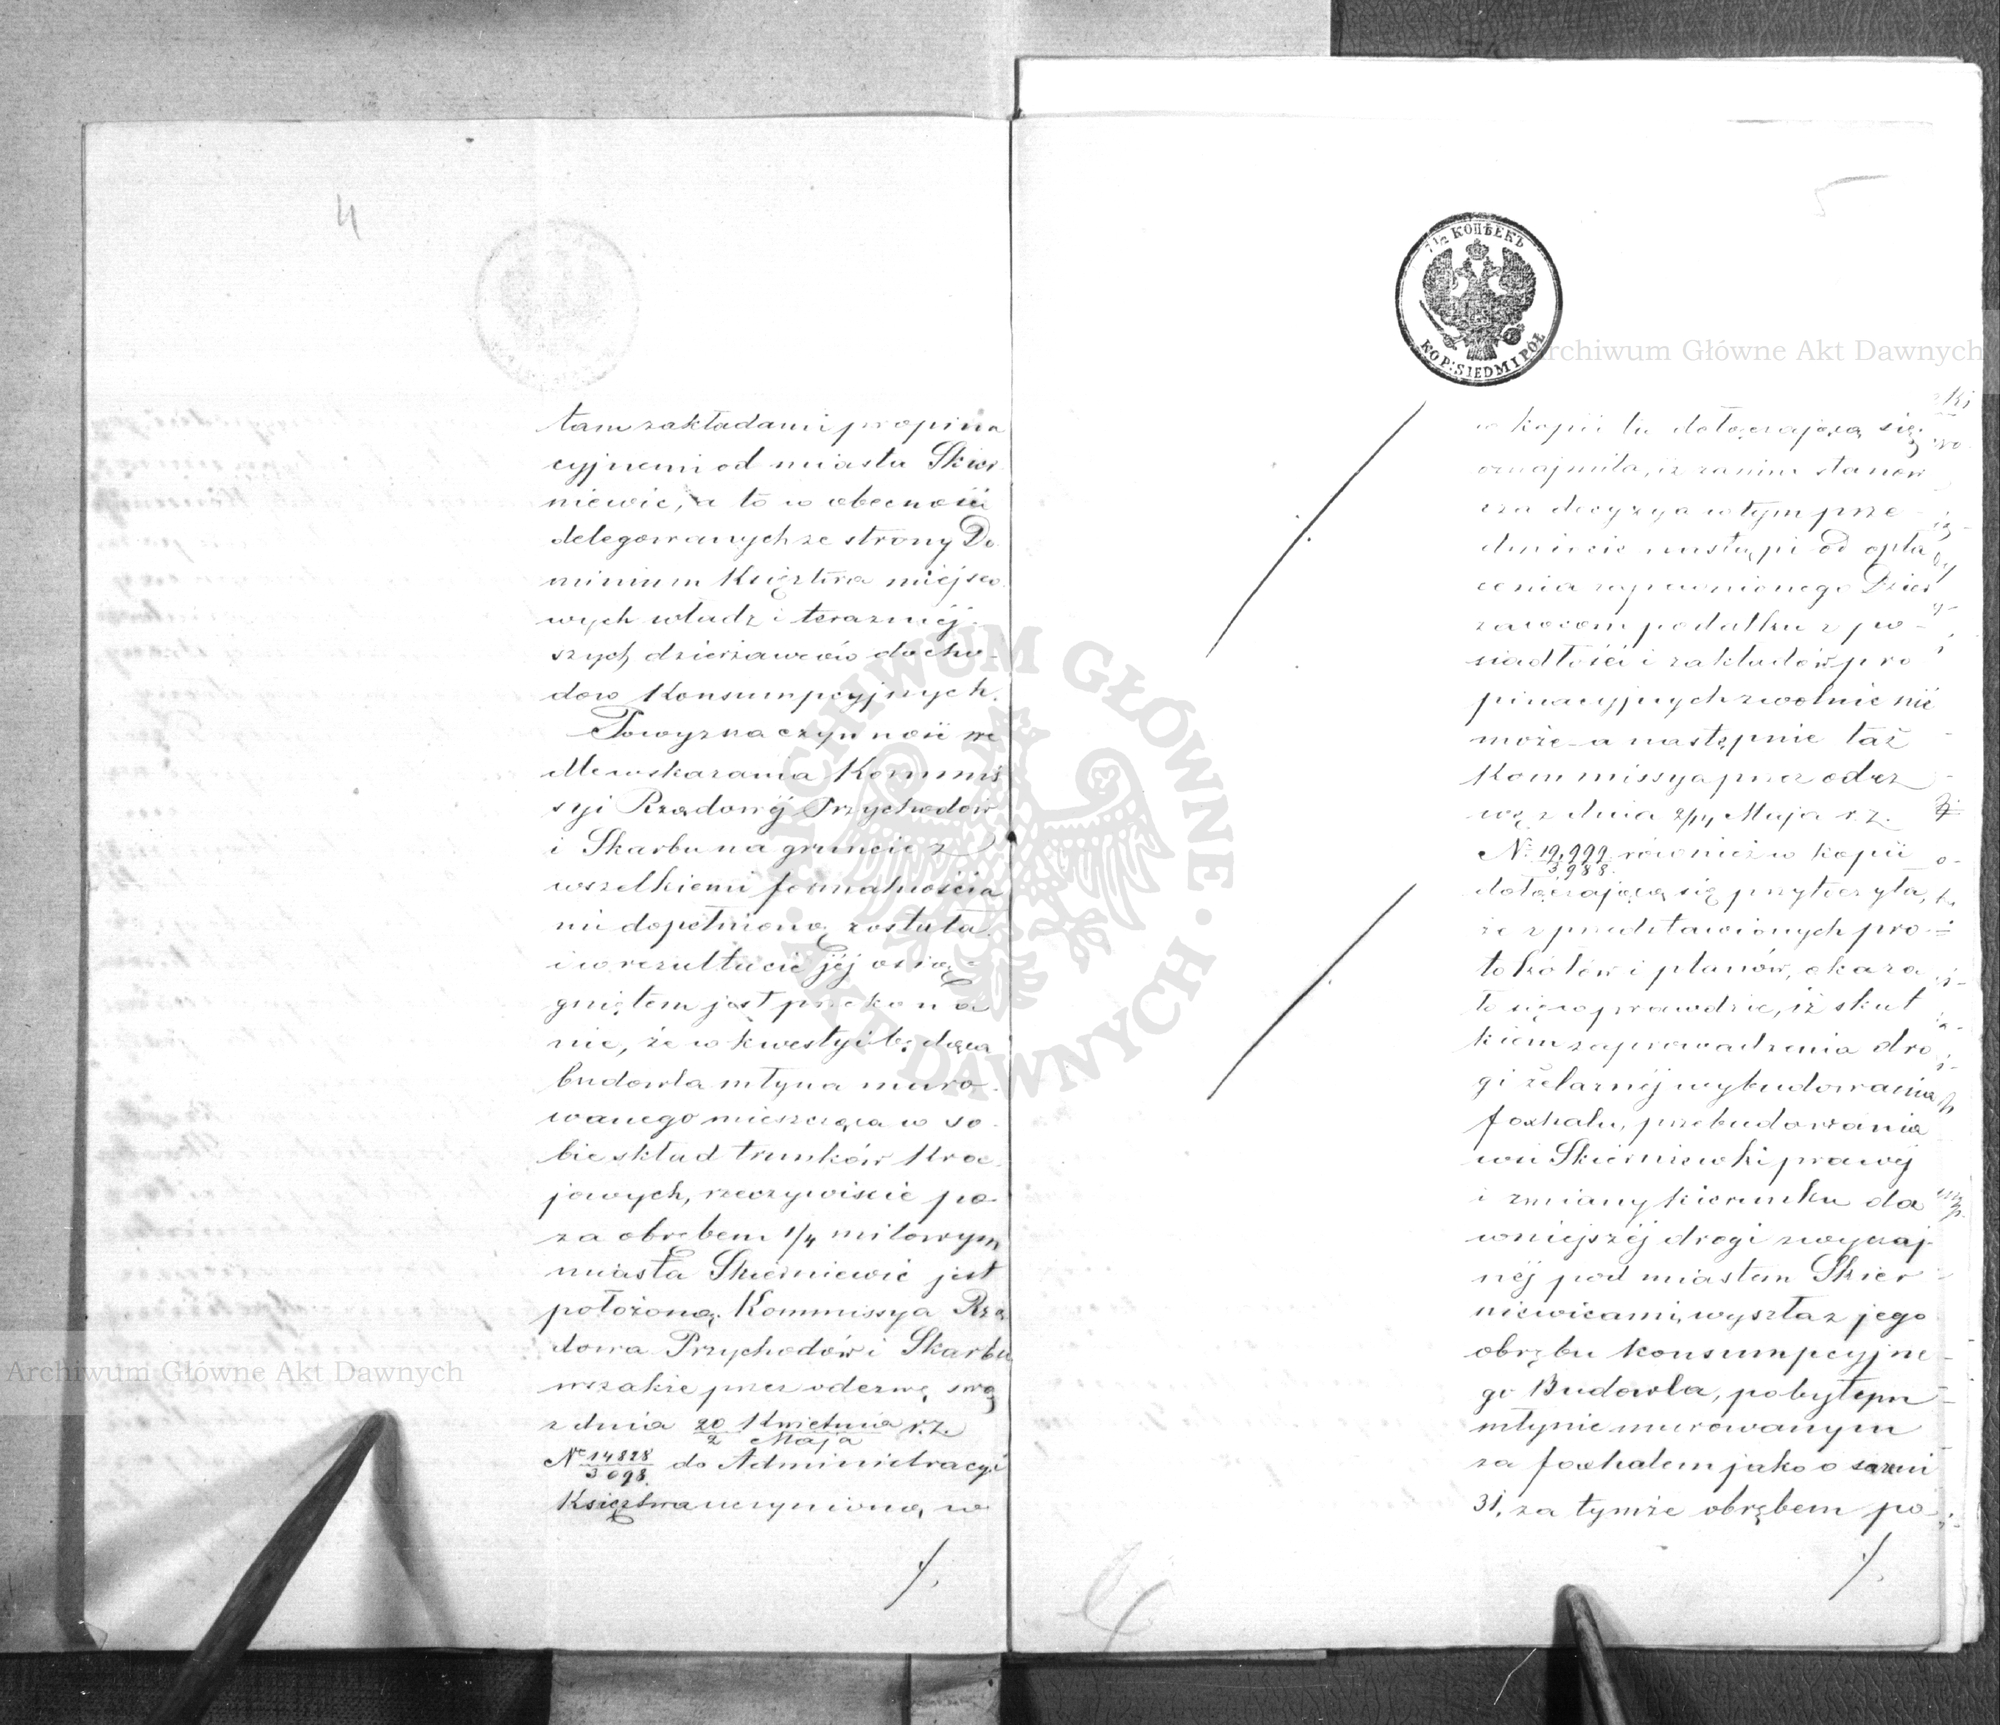 4
tam zakładami propina
cyjnemi od miasta Skier
niewic, a to w obecności
delegowanych ze strony Do
minium Księztwa miejsco
wych władz i teraźniéj-
szych dzierżawców docho-
dow Konsumpcyjnych.
Powyższa czynność we
dle wskazania Kommis
syi Rządowéj Przychodów
i Skarbu na gruncie z
wszelkiemi formalnościa
mi dopełnioną została
i w rezultacie jéj osią
gniętem jest przekona
nie, że w kwestyi będąca
budowla młyna muro-
wanego mieszcząca w so-
bie skład trunków Kra-
jowych, rzeczywiście po-
za obrębem 1/4 milowym
miasta Skierniewic jest
położoną. Kommissya Rzą
dowa Przychodów i Skarbu
wszakże przez odezwę swą
z dnia 20 Kwietnia / 2 Maja r.z.
No 14828/3098. do Administracyi
Księztwa uczynioną, w
./.
5
7 1/2 КОПѢЕКЪ
KOP: SIEDM I PÓŁ
w kopii tu dołączającą się
oznajmiła, iż zanim stanow
cza decyzya w tym prze-
dmiocie nastąpi od opła
cenia zapewnionego Dzier
żawcom podatku z po-
siadłości i zakładów pro
pinacyjnych zwolnić nie
może a następnie taż
Kommissya przez odez
wę z dnia 2/14 Maja r.z.
No 19,999/3988. również w kopii
dołączającą się przytoczyła,
że z przedstawionych pro-
tokółów i planów, okaza
ło się wprawdzie, iż skut
kiem zaprowadzenia dro
gi żelaznéj wybudowania
foxhalu, przebudowania
wsi Skierniewki prawéj
i zmiany kierunku da
wniejszéj drogi zwyczaj
néj pod miastem Skier-
niewicami, wyszła z jego
obrębu konsumpcyjne-
go Budowla, po byłym
młynie murowanym
za foxhalem jako o sążni
31, za tymże obrębem po-
./.
Archiwum Główne Akt Dawnych
Archiwum Główne Akt Dawnych
ARCHIWUM GŁÓWNE AKT DAWNYCH